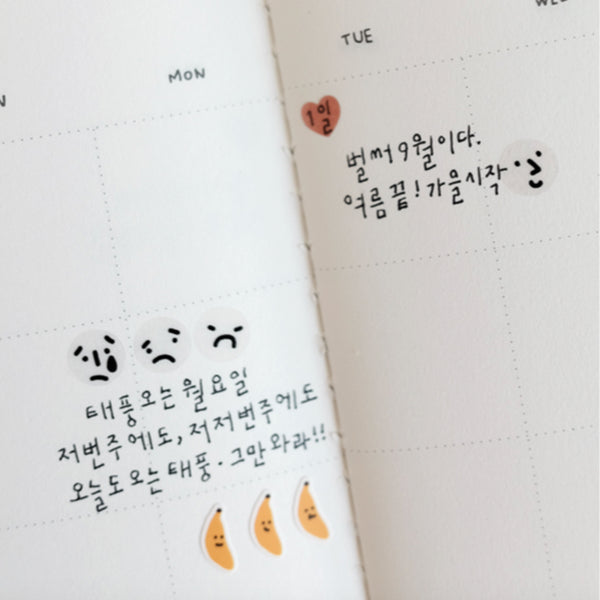 MON
TUE
1일
벌써 9월이다.
여름 끝! 가을시작
태풍오는 월요일
저번주에도, 저저번주에도
오늘도 오는 태풍. 그만 와라!!